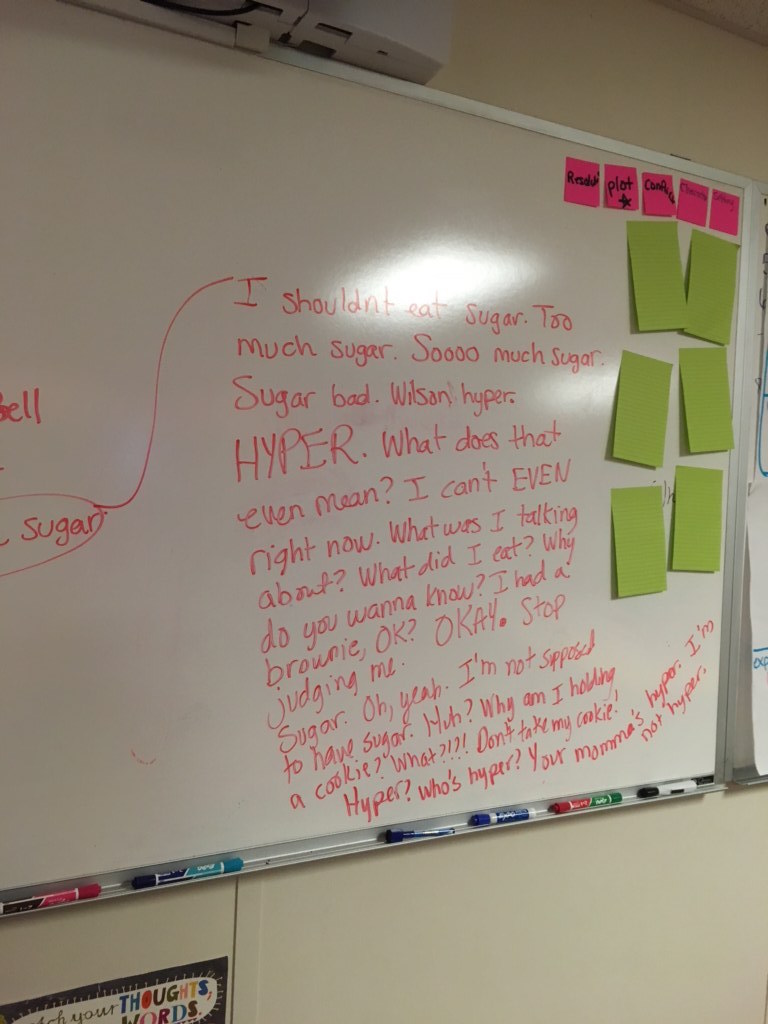 Resoluti
plot
Conflict
Setting
I shouldnt eat sugar. Too
much sugar. Soooo much sugar.
Sugar bad. Wilson hyper.
HYPER. What does that
even mean? I can't EVEN
right now. What was I talking
about? What did I eat? Why
do you wanna know? I had a
brownie, OK? OKAY. Stop
judging me.
Sugar. Oh, yeah. I'm not supposed
to have sugar. Huh? Why am I holding
a cookie? What?!?! Don't take my cookie!
Hyper? Who's hyper? Your momma's hyper. I'm
not hyper.
sell
sugar
your THOUGHTS,
WORDS.